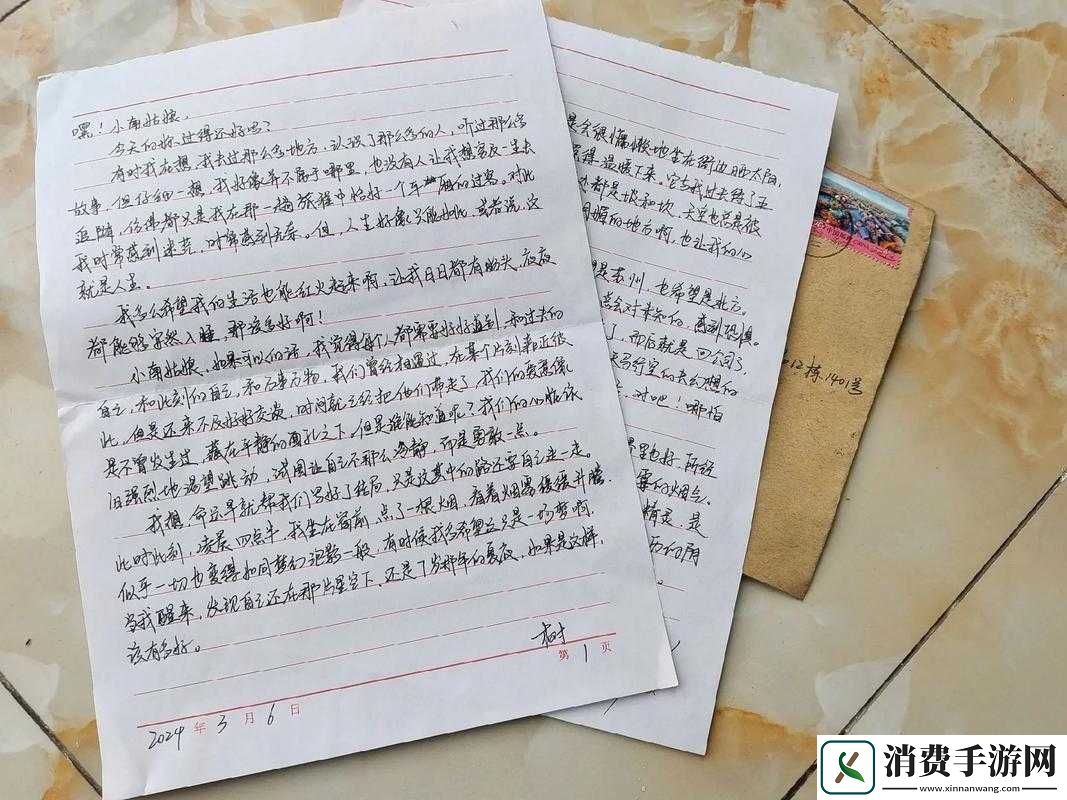 嘿！小南姑娘，
今天的你过得还好吗？
有时我在想，我去过那么多地方，认识了那么多的人，听过那么多
故事，但仔细一想，我好像并不属于哪里，也没有人让我想穷尽一生去
追随，仿佛都只是我在那一趟旅程中恰好一个车厢的过客。对此
我时常感到迷茫，时常感到无奈。但，人生好像只能如此，或者说，这
就是人生。
我多么希望我的生活也能红火起来啊，让我日日都有盼头，夜夜
都能够安然入睡，那该多好啊！
小南姑娘，如果可以的话，我觉得每个人都需要好好道别，和过去的
自己，和此刻的自己，和万事万物，我们曾经相遇过，在某个片刻靠近彼
此，但是还来不及好好交谈，时间就已经把他们带走了，我们的要装像
是不曾发生过，藏在平静的面孔之下，但是谁能知道呢？我们的心脏依
旧强烈地渴望跳动，试图让自己不那么冷静，而是勇敢一点。
我想，命运早就帮我们写好了结局，只是这其中的路还要自己走一走。
此时此刻，凌晨四点半，我坐在窗前，点了一根烟，看着烟雾缓缓升腾，
似乎一切也变得如同梦幻泡影一般，有时候我多希望这只是一场梦啊，
当我醒来，发现自己还在那片星空下，还是17岁那年的夏夜，如果是这样，
该有多好。
树
第 1 页
2024 年 3 月 6 日
是会很慵懒地坐在街边晒太阳，
觉得温暖下来。它与我过去待了五
都是坎和坎，天空也总是被
的地方啊，也让我的心
是苏州，也希望是北方。
总会对未知的，感到恐惧。
了，而后就是四公司了，
天马行空的去幻想的
，对吧！哪怕
里也好，所经
雾的烟气。
精灵，是
12栋1401号
消费手游网
www.xinnanwang.com